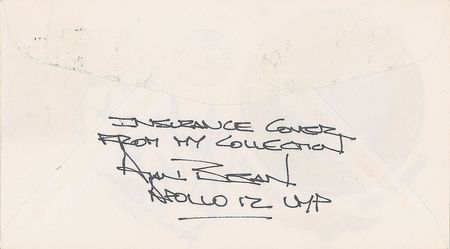 INSURANCE COVER
FROM MY COLLECTION
ALAN BEAN
APOLLO 12 LMP